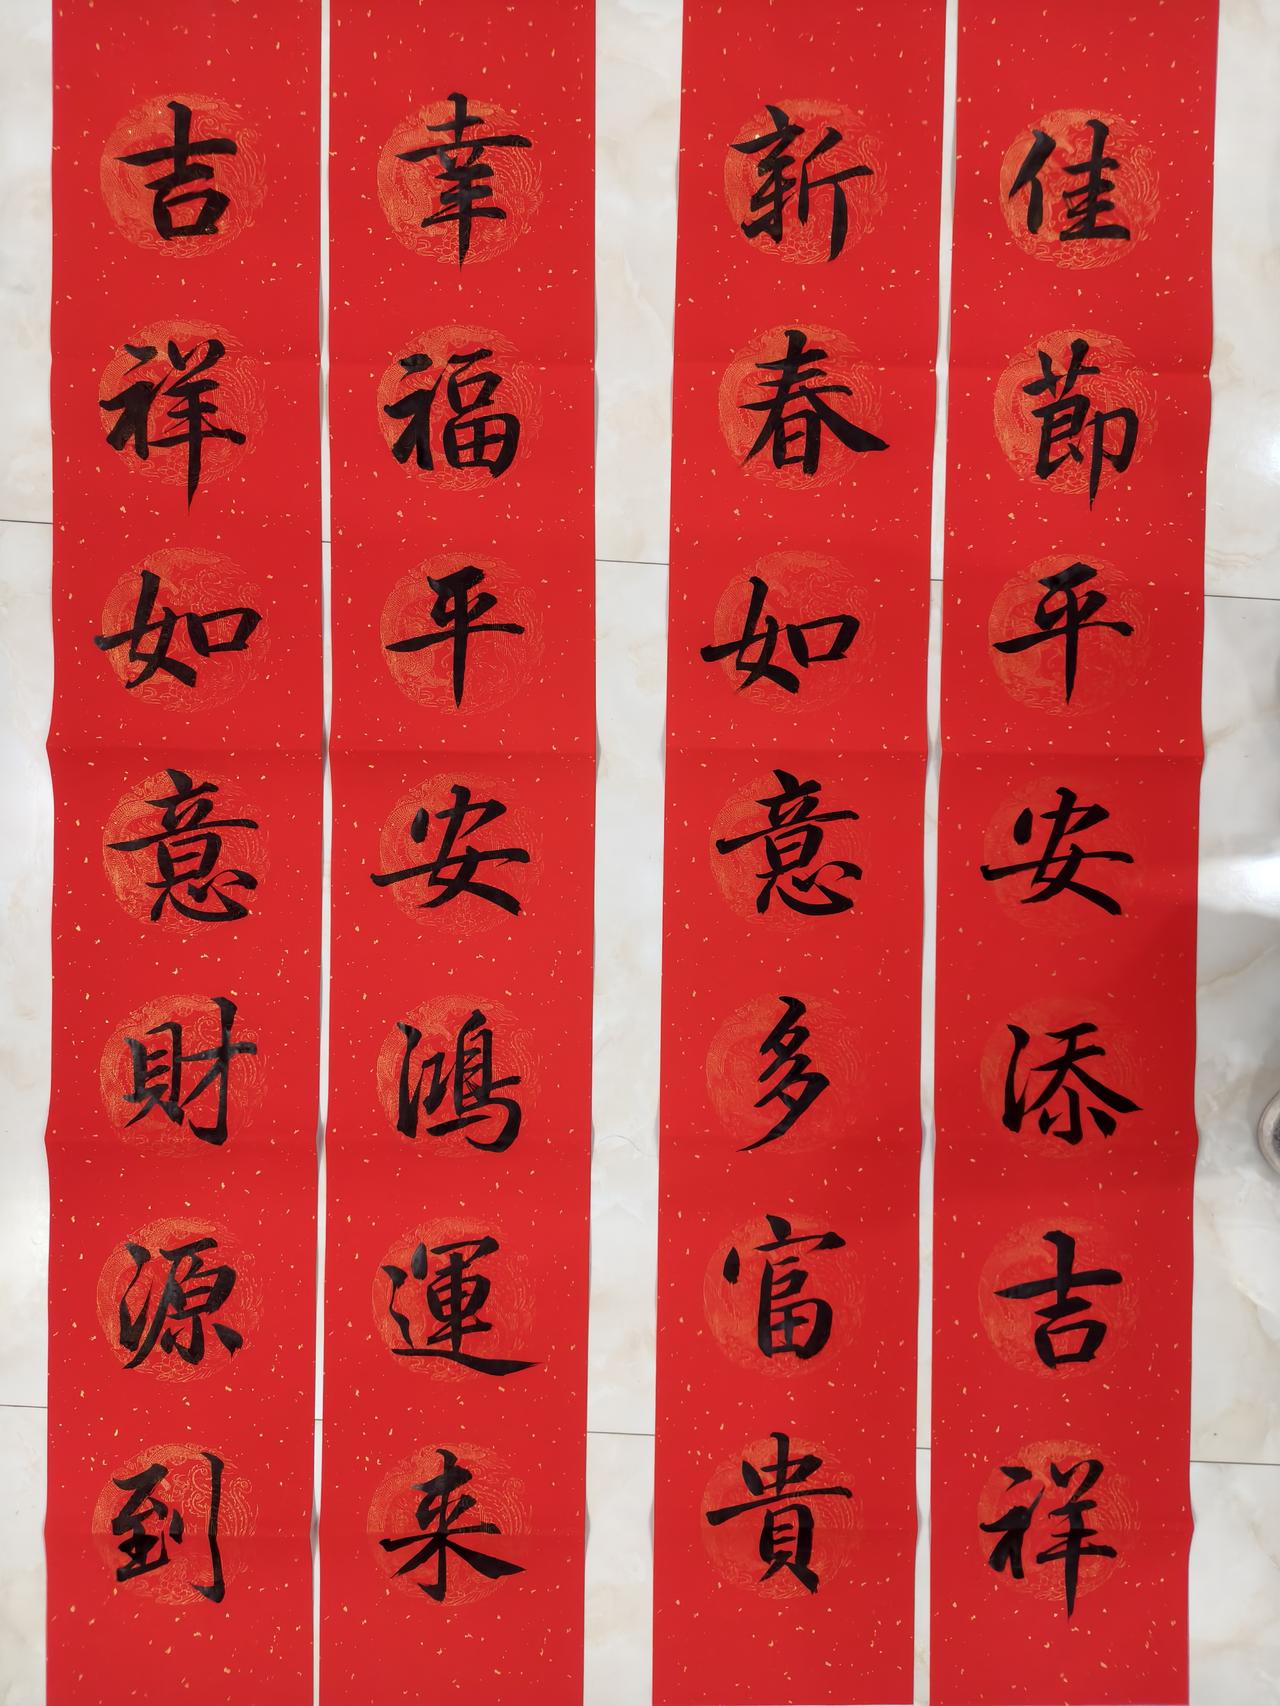 佳節平安添吉祥
新春如意多富貴
幸福平安鴻運来
吉祥如意財源到